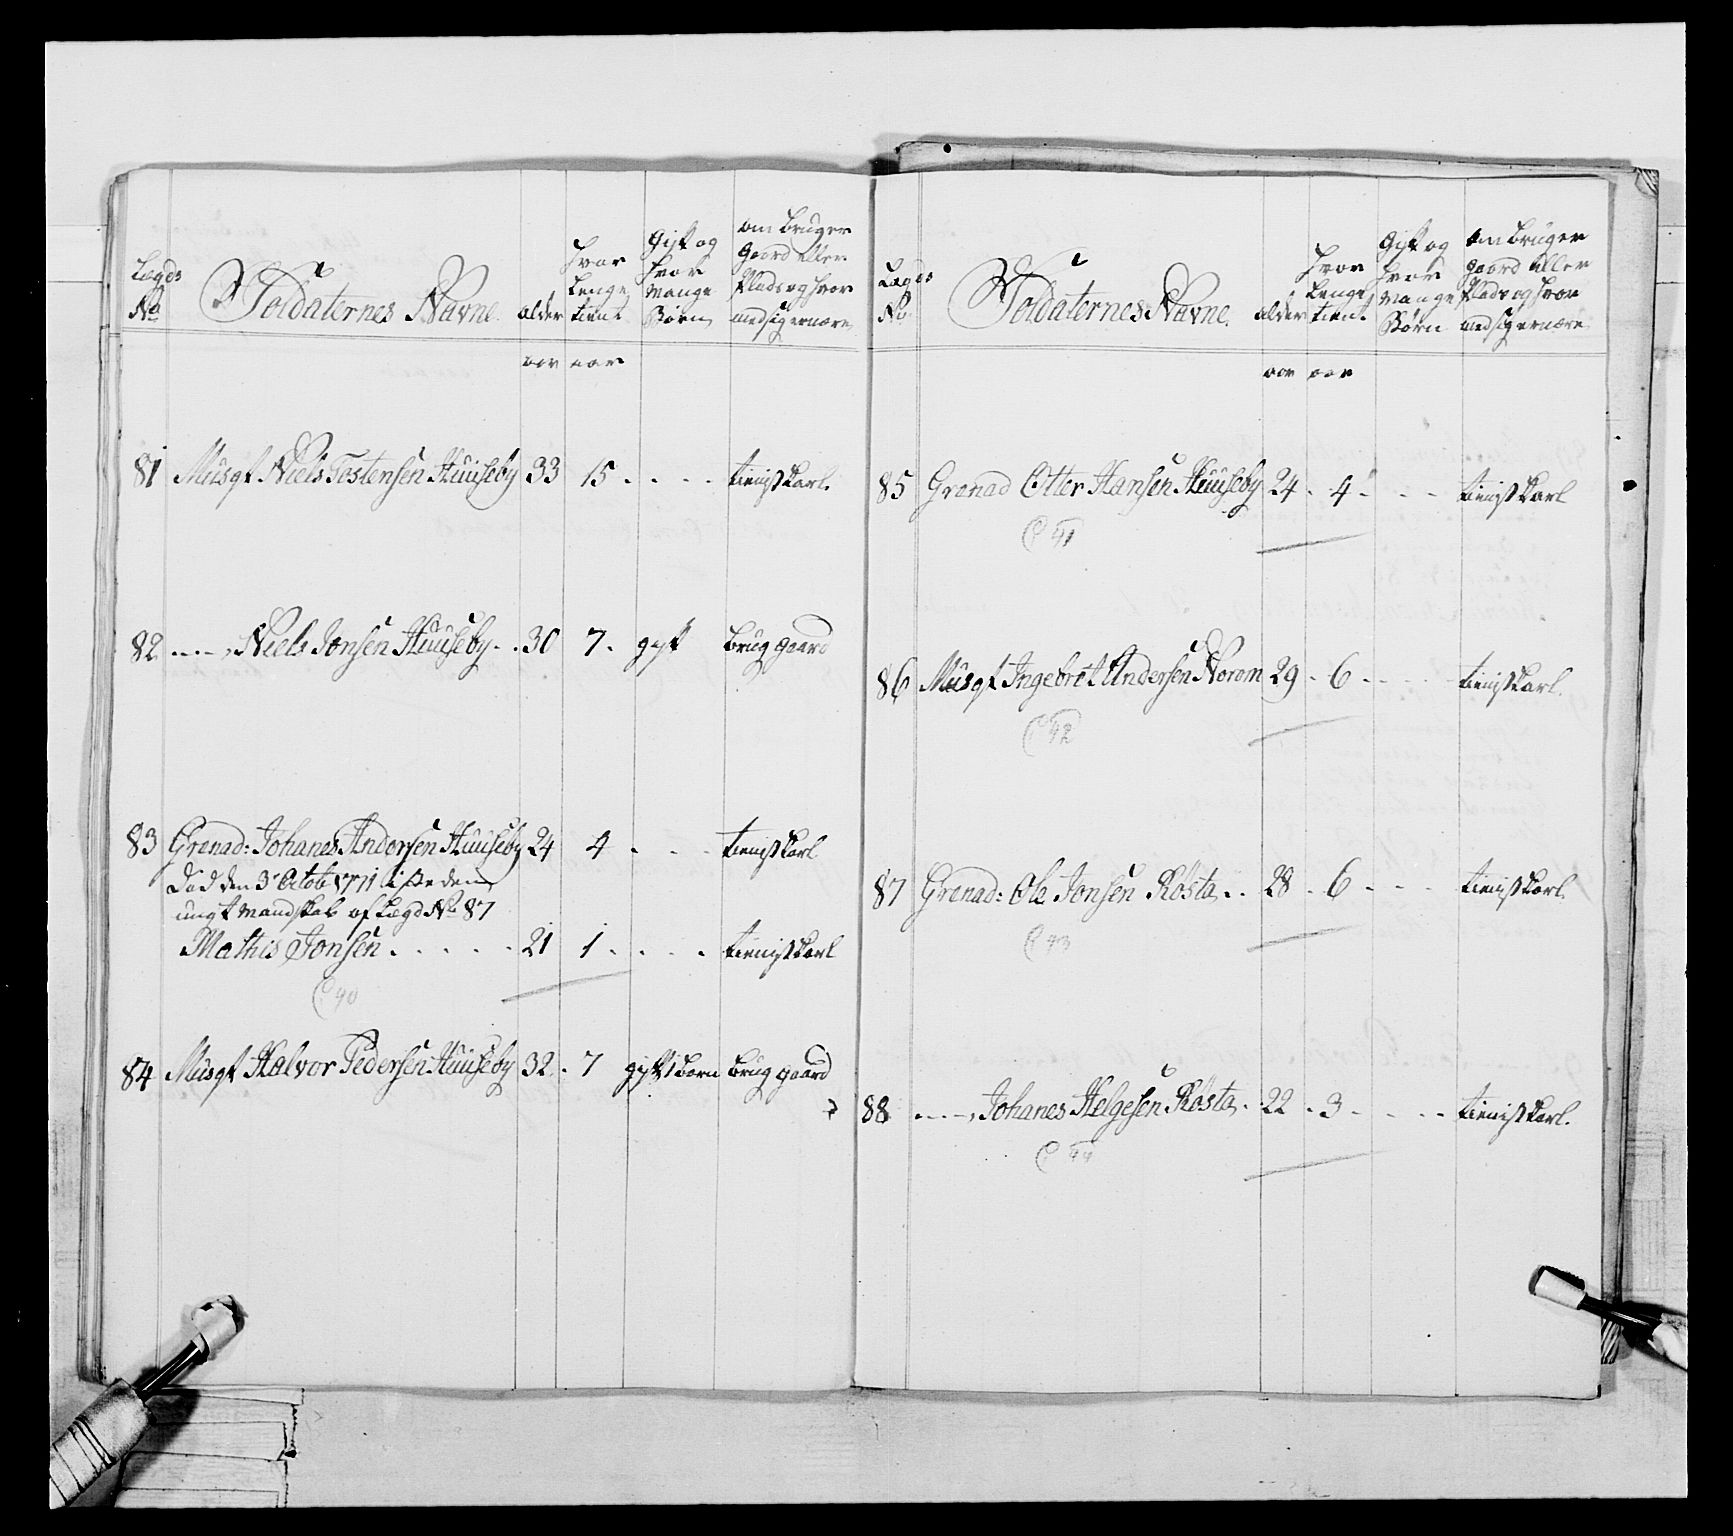 Lægds No
Soldaternes Navne.
alder
hvor Lenge tient
Gift og hvor mange Børn
om bruger Gaard eller Plads og hvor med sig ernære
aar aar
81 Musqt Niels Tostensen Huuseby 33 15 . . . . tienistkarl.
82 . . . . , Niels Jonsen Huuseby . . 30 7 . gift brug gaard
83 Grenad: Johanes Andersen Huuseby 24 4 . . . tienistkarl
død den 3t Octob 1771 i steden
ungt Mandskab af Lægd No 87
Mathis Jonsen . . . . . 21 1 . . . . tienistkarl
C 40
84 Musqt Halvor Pedersen Huuseby 32 . 7 gift 1 barn brug gaard
Lægds No
Soldaternes Navne.
alder
hvor Lenge tient
Gift og hvor mange Børn
om bruger gaard eller Plads og hvor med sig ernære
aar aar
85 Grenad Otter Hansen Huuseby 24 . 4 . . . tienistkarl
C 41
86 Musqt Ingebret Andersen Norom 29 . 6 . . . . tienistkarl.
C 42
87 Grenad: Ole Jonsen Rosta . . 28 . 6 . . . tienistkarl.
C 43
88 . . . . , Johanes Helgesen Rosta . 22 . 3 . . . . tienistkarl.
C 44